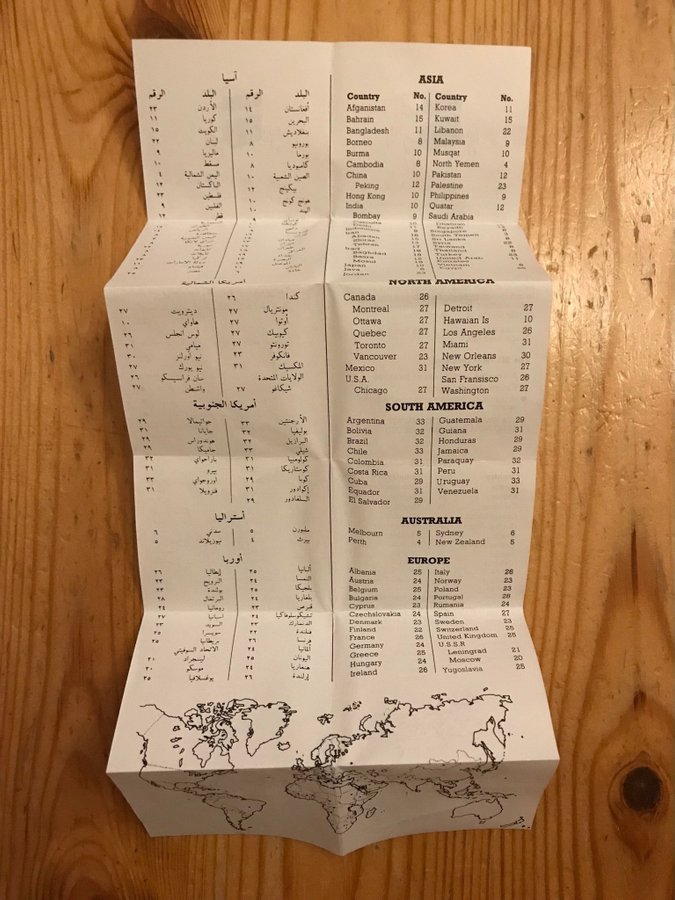 آسيا
البلد الرقم البلد الرقم
أفغانستان ١٤ الأردن ٢٣
البحرين ١٥ كوريا ١١
بنغلاديش ١١ الكويت ١٥
بورنيو ٨ لبنان ٢٢
بورما ١٠ ماليزيا ٩
كامبوديا ٨ مسقط ١٠
الصين الشعبية ١٠ اليمن الشمالية ٤
بيكينج ١٢ الباكستان ١٢
هونج كونج ١٠ فلسطين ٢٣
الهند ١٠ الفلبين ٩
قطر ١٢
ASIA
Country No. Country No.
Afganistan 14 Korea 11
Bahrain 15 Kuwait 15
Bangladesh 11 Libanon 22
Borneo 8 Malaysia 9
Burma 10 Musqat 10
Cambodia 8 North Yemen 4
China 10 Pakistan 12
Peking 12 Palestine 23
Hong Kong 10 Philippines 9
India 10 Quatar 12
Bombay 9 Saudi Arabia
Jordan 23
أمريكا الشمالية
كندا ٢٦
مونتريال ٢٧ ديترويت ٢٧
أوتوا ٢٧ هاواي ١٠
كيوبيك ٢٧ لوس انجلس ٢٦
تورونتو ٢٧ ميامي ٣١
فانكوفر ٢٣ نيو أورلنز ٣٠
المكسيك ٣١ نيو يورك ٢٧
الولايات المتحدة سان فرانسيسكو ٢٦
شيكاغو ٢٧ واشنطن ٢٧
NORTH AMERICA
Canada 26
Montreal 27 Detroit 27
Ottawa 27 Hawaian Is 10
Quebec 27 Los Angeles 26
Toronto 27 Miami 31
Vancouver 23 New Orleans 30
Mexico 31 New York 27
U.S.A. San Fransisco 26
Chicago 27 Washington 27
أمريكا الجنوبية
الأرجنتين ٣٣ جواتيمالا ٢٩
بوليفيا ٣٢ جايانا ٣١
البرازيل ٣٢ هوندوراس ٢٩
شيلي ٣٣ جاميكا ٢٩
كولومبيا ٣١ باراجواي ٣٢
كوستاريكا ٣١ بيرو ٣١
كوبا ٢٩ اوروجواي ٣٣
إكوادور ٣١ فنزويلا ٣١
السلفادور ٢٩
SOUTH AMERICA
Argentina 33 Guatemala 29
Bolivia 32 Guiana 31
Brazil 32 Honduras 29
Chile 33 Jamaica 29
Colombia 31 Paraquay 32
Costa Rica 31 Peru 31
Cuba 29 Uruguay 33
Equador 31 Venezuela 31
El Salvador 29
أستراليا
ملبورن ٥ سدني ٦
بيرث ٤ نيوزيلاند ٥
AUSTRALIA
Melbourn 5 Sydney 6
Perth 4 New Zealand 5
أوربا
ألبانيا ٢٥ إيطاليا ٢٦
النمسا ٢٤ النرويج ٢٣
بلجيكا ٢٥ بولندة ٢٣
بلغاريا ٢٤ البرتغال ٢٨
قبرص ٢٣ رومانيا ٢٤
تشيكوسلوفاكيا ٢٤ اسبانيا ٢٧
الدنمارك ٢٣ السويد ٢٣
فنلندة ٢٢ سويسرا ٢٥
فرنسا ٢٦ بريطانيا ٢٥
ألمانيا ٢٤ الاتحاد السوفيتي
اليونان ٢٥ لينينجراد ٢١
هنغاريا ٢٤ موسكو ٢٠
إيرلندة ٢٦ يوغسلافيا ٢٥
EUROPE
Albania 25 Italy 26
Austria 24 Norway 23
Belgium 25 Poland 23
Bulgaria 24 Portugal 28
Cyprus 23 Rumania 24
Czechoslavakia 24 Spain 27
Denmark 23 Sweden 23
Finland 22 Switzerland 25
France 26 United Kingdom 25
Germany 24 U.S.S.R
Greece 25 Leningrad 21
Hungary 24 Moscow 20
Ireland 26 Yugoslavia 25